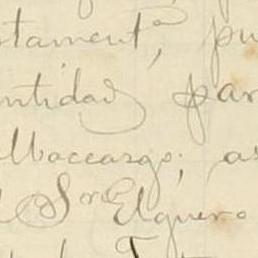 stament.°, pu
ntidad par
lbaceazgo; as
l Sor Elguero